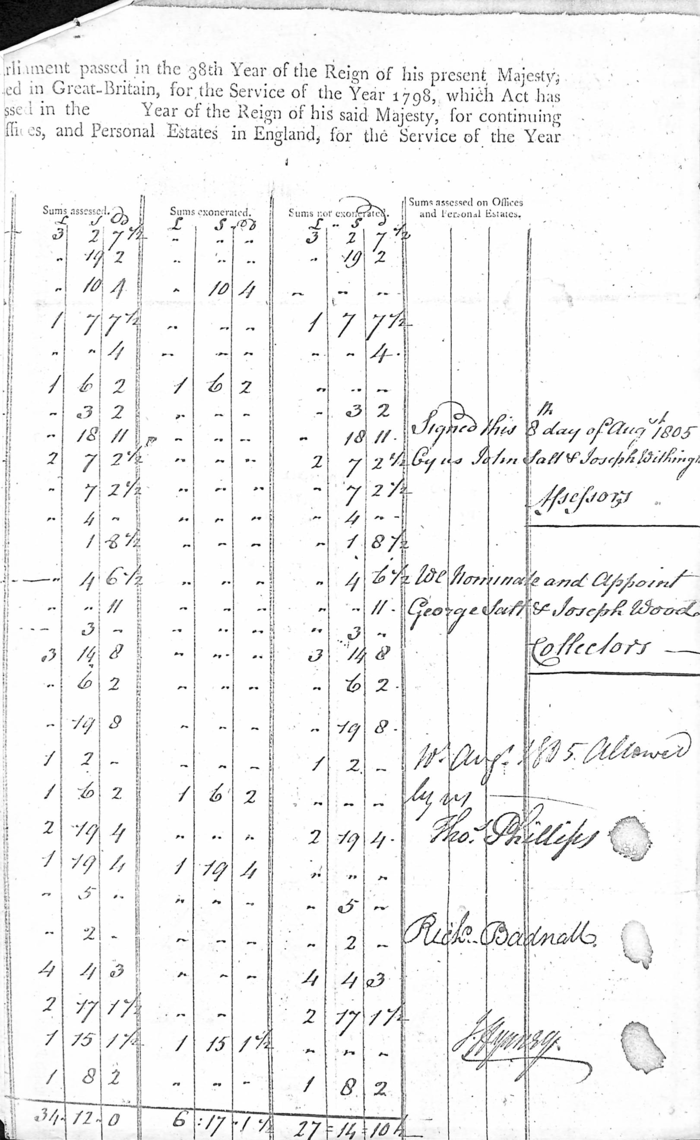 rliament passed in the 38th Year of the Reign of his present Majesty,
ed in Great-Britain, for the Service of the Year 1798, which Act has
ssed in the Year of the Reign of his said Majesty, for continuing
ffices, and Personal Estates in England, for the Service of the Year
Sums assessed. Sums exonerated. Sums not exonerated. Sums assessed on Offices and Personal Estates.
£ S D £ S D £ S D
3 2 7½ " " " 3 2 7½
" 19 2 " " " " 19 2
" 10 4 " 10 4 " " "
1 7 7½ " " " 1 7 7½
" " 4 " " " " " 4
1 6 2 1 6 2 " " "
" 3 2 " " " " 3 2
" 18 11 " " " " 18 11 Signed this 8th day of Augst 1805
2 7 2½ " " " 2 7 2½ by us John Salt & Joseph Withing
" 7 2½ " " " " 7 2½ Assessors
" 4 " " " " " 4 "
1 8½ " " " " 1 8½
" 4 6½ " " " " 4 6½ We Nominate and Appoint
" " 11 " " " " " 11 George Salt & Joseph Wood
3 " " " " " 3 "
3 14 8 " " " 3 14 8 Collectors
" 6 2 " " " " 6 2
" 19 8 " " " " 19 8
1 2 " " " " 1 2 " Augt 1805 Allowed
1 6 2 1 6 2 " " " by us
2 19 4 " " " 2 19 4 Thos Phillips
1 19 4 1 19 4 " " "
" 5 " " " " " 5 "
" 2 " " " " " 2 " Richd Badnall
4 4 3 " " " 4 4 3
2 17 1½ " " 2 17 1½
1 15 1½ 1 15 1½ " " "
1 8 2 " " " 1 8 2
34-12-0 6:17-1½ 27=14=10½